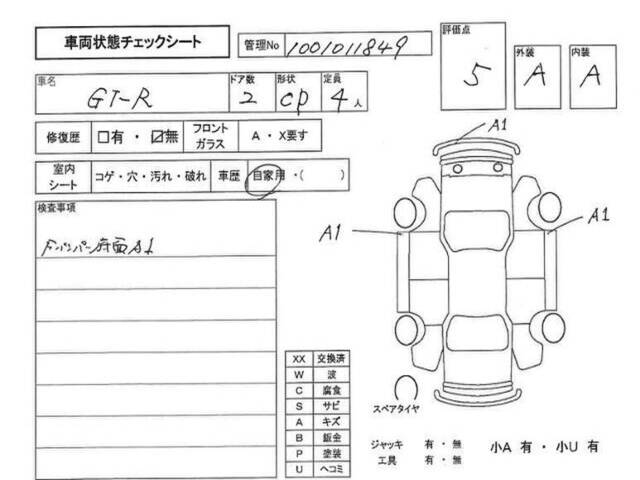 車両状態チェックシート
管理No 1001011849
評価点 5
外装 A
内装 A
車名 GT-R
ドア数 2
形状 CP
定員 4 人
修復歴 □有・☑無
フロントガラス A・X要す
室内シート コゲ・穴・汚れ・破れ
車歴 自家用・( )
検査事項
バンパー A1
A1
A1
A1
XX 交換済
W 波
C 腐食
S サビ
A キズ
B 鈑金
P 塗装
U ヘコミ
スペアタイヤ
ジャッキ 有・無
工具 有・無
小A 有・小U 有